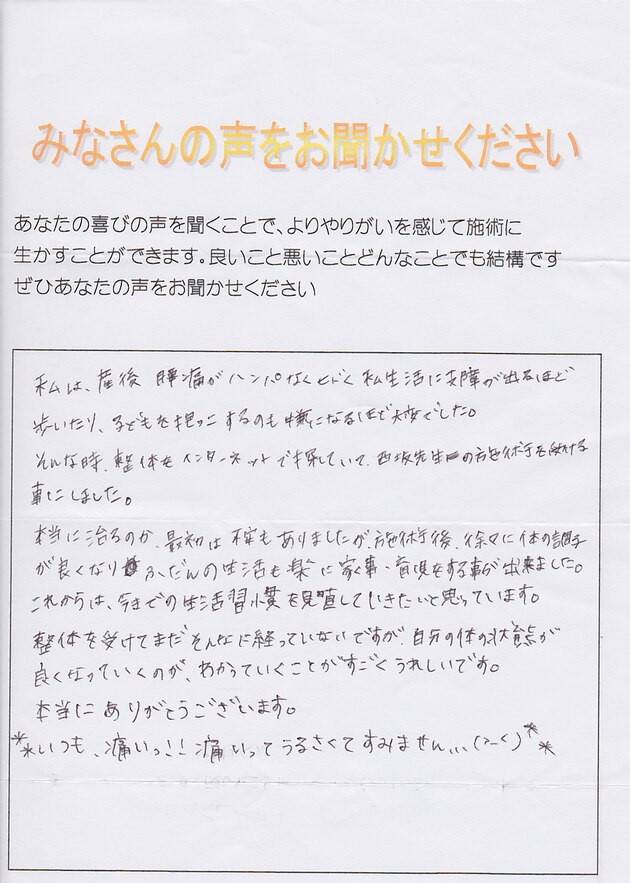 みなさんの声をお聞かせください
あなたの喜びの声を聞くことで、よりやりがいを感じて施術に
生かすことができます。良いこと悪いことどんなことでも結構です
ぜひあなたの声をお聞かせください
私は、産後 腰痛がハンパなくヒドく 私生活に支障が出るほど
歩いたり、子どもを抱っこするのも嫌になるほど大変でした。
そんな時、整体をインターネットで探していて、西坂先生の施術を受ける
事にしました。
本当に治るのか、最初は不安もありましたが、施術後、徐々に体の調子
が良くなり ふだんの生活も楽に家事・育児をする事が出来ました。
これからは、今までの生活習慣を見直していきたいと思っています。
整体を受けてまだそんなに経っていないですが、自分の体の状態が
良くなっていくのが、わかっていくことがすごくうれしいです。
本当にありがとうございます。
**いつも、痛いっ!!痛いってうるさくてすみません...(>-<)**